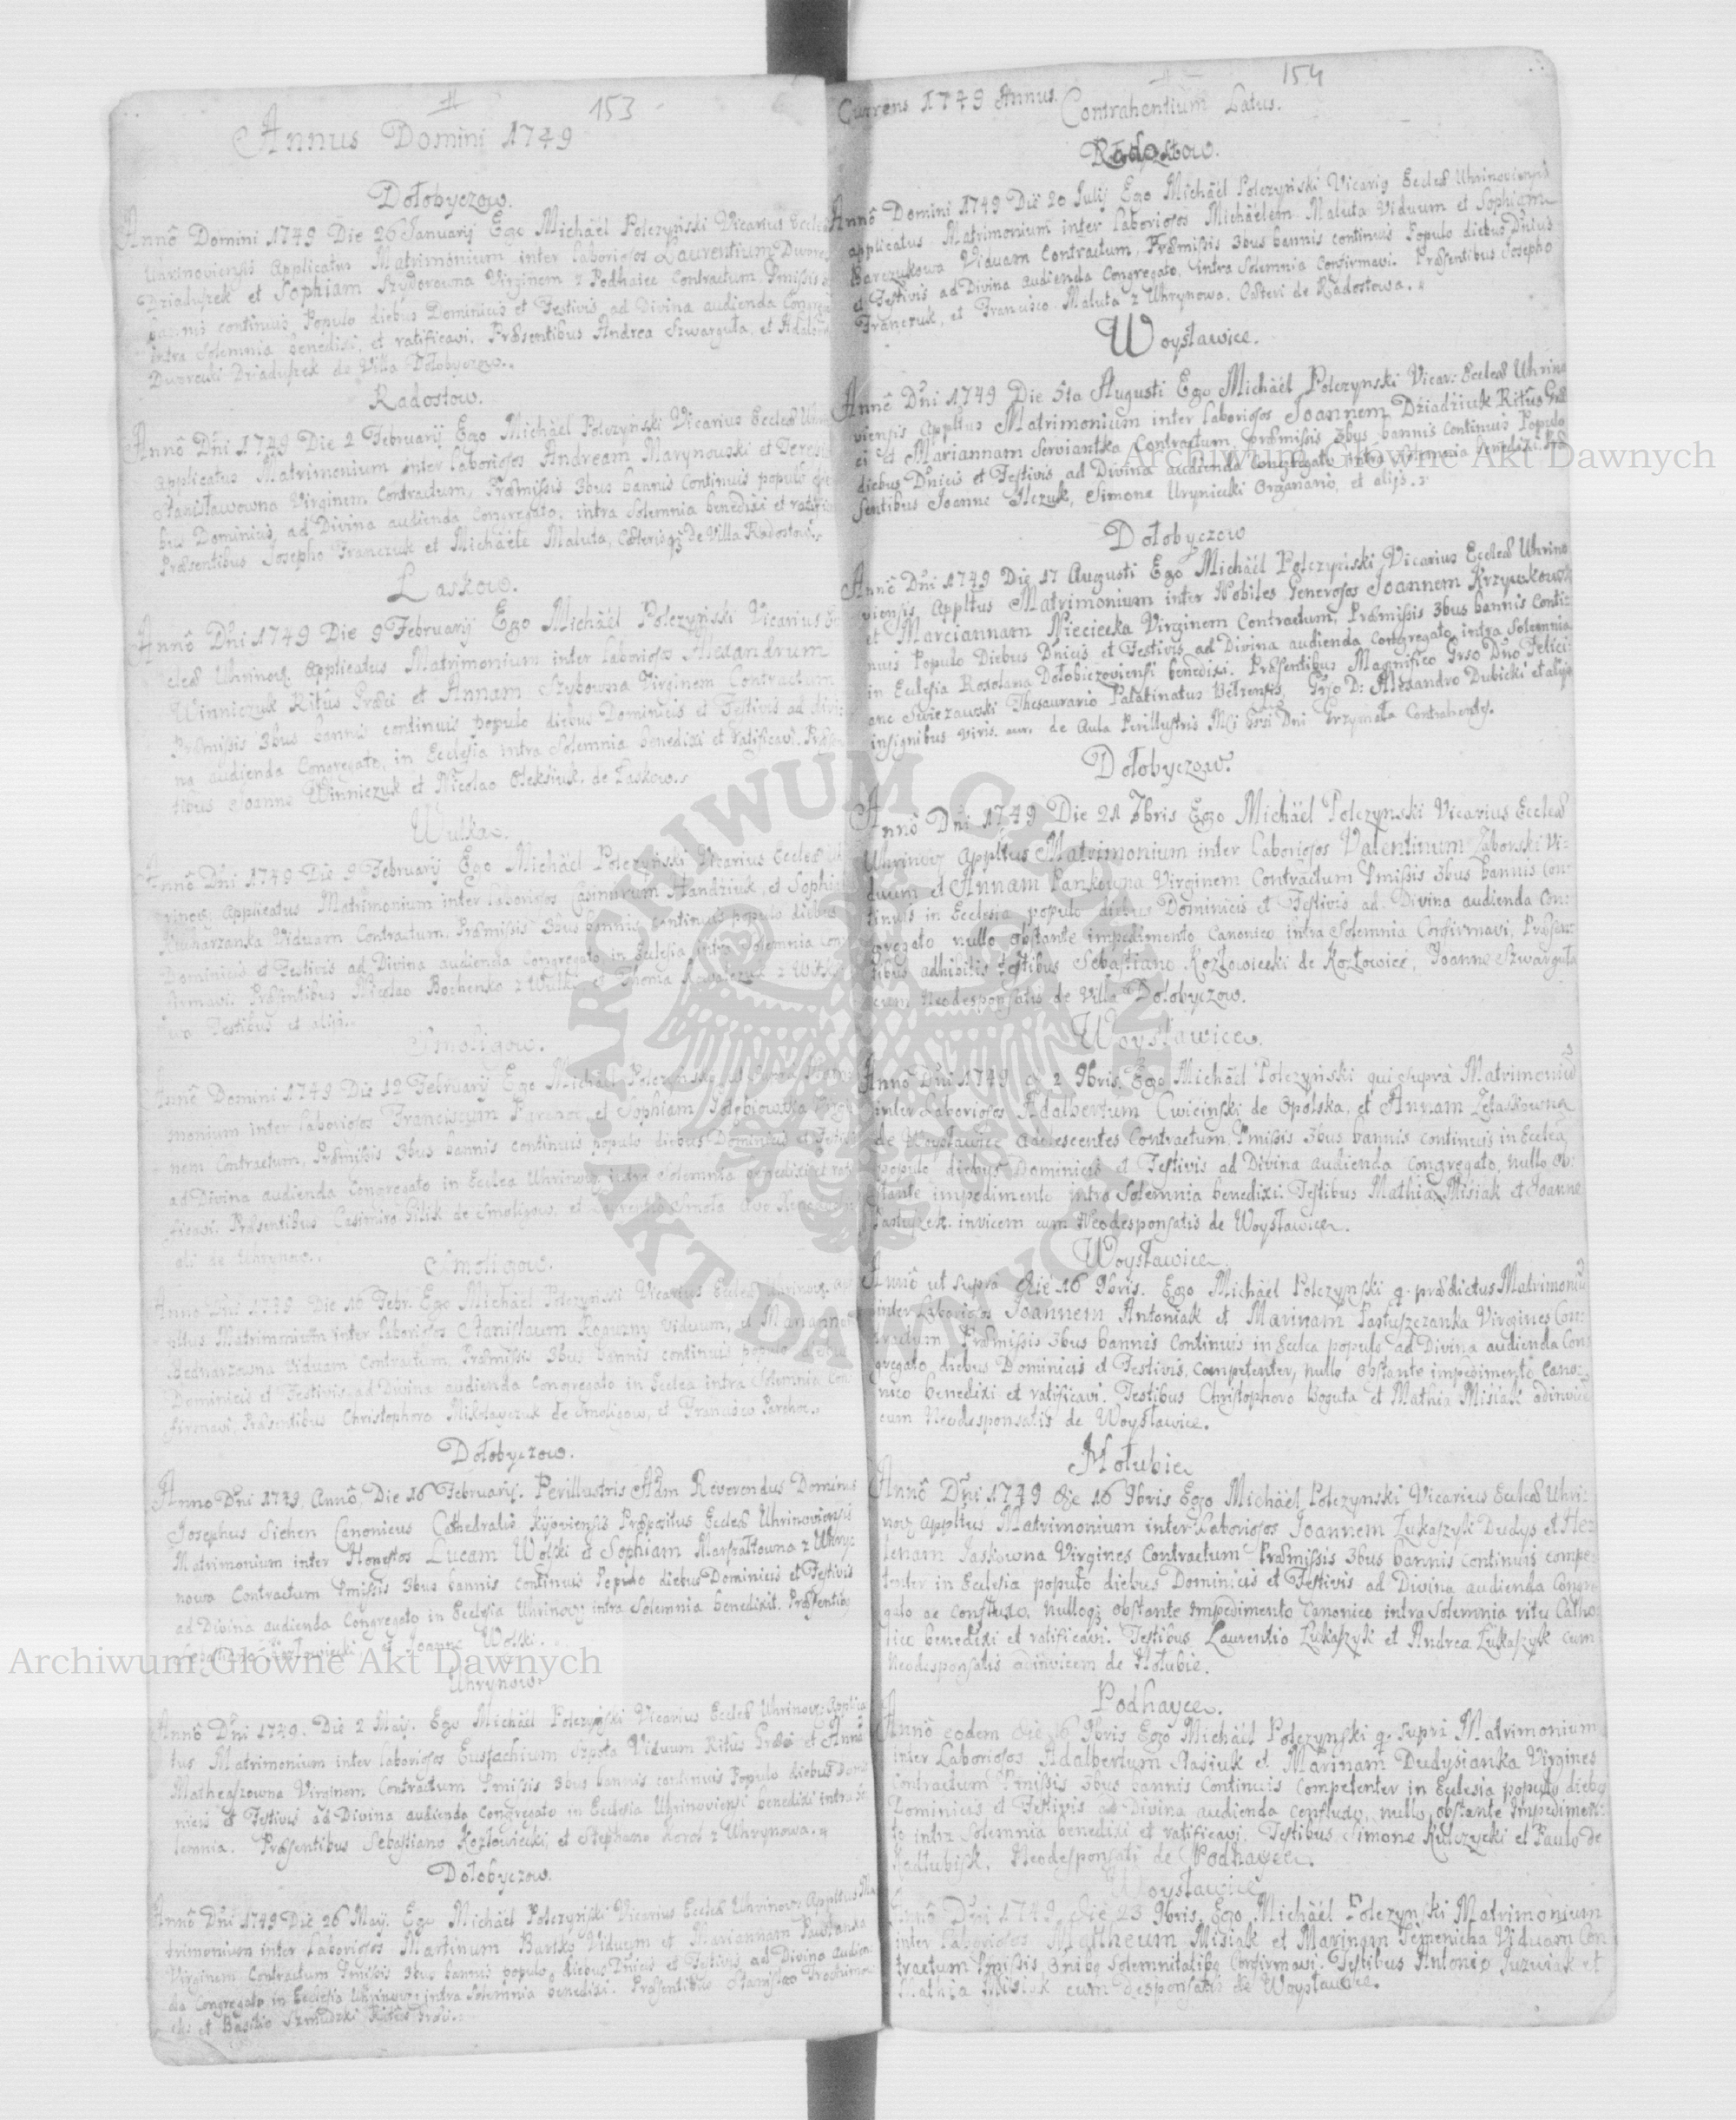 153
Annus Domini 1749
Dołobyczow.
Annô Domini 1749 Die 26 Januarij Ego Michäel Polczyński Vicarius Eccleæ
Uhrinoviensis Applicatus Matrimonium inter laboriosos Laurentium Dworec
Dziaduszek et Sophiam Szydorowna Virginem z Podhaiec Contractum, Pmissis
bannis continuis, Populo diebus Dominicis et Festivis ad Divina audienda Congreg
intra Solemnia benedixi, et ratificavi, Præsentibus Andrea Szwarguła, et Adalb
Dworecki Dziaduszek de Villa Dołobyczow.
Radostow.
Annô Dni 1749 Die 2 Februarij Ego Michäel Polczyński Vicarius Eccleæ Uhri
applicatus Matrimonium inter laboriosos Andream Marynowski et Teresi
Stanisławowna Virginem Contractum, Præmissis 3bus bannis Continuis populo die
bus Dominicis, ad Divina audienda Congregato, intra Solemnia benedixi et ratific
Præsentibus Josepho Franczuk et Michäele Maluta, Cæterisqz de Villa Radostow.
Laskow.
Annô Dni 1749 Die 9 Februarij Ego Michäel Polczyński Vicarius Ec
cleæ Uhrinov. Applicatus Matrimonium inter laboriosos Alexandrum
Winniczuk Ritûs Græci et Annam Szybowna Virginem Contractum
Præmissis 3bus bannis continuis populo diebus Dominicis et Festivis ad divi
na audienda Congregato, in Ecclesia intra Solemnia benedixi et ratificavi. Præsen
tibus Joanne Winniczuk et Nicolao Oleksiuk. de Laskow.
Wulka.
Annô Dni 1749 Die 9 Februarij Ego Michäel Polczyński Vicarius Eccleæ Uh
rinov. Applicatus Matrimonium inter laboriosos Casimirum Handziuk, et Sophi
Kucharzanka Viduam Contractum, Præmissis 3bus bannis continuis populo diebus
Dominicis et Festivis ad Divina audienda Congregato in Ecclesia intra Solemnia Con
firmavi. Præsentibus Nicolao Bochenko z Wulki et Thoma Kowalczuk z
Testibus et alijs.
Smoligow.
Annô Domini 1749 Die 12 Februarij Ego Michäel Polczyński ut supra Matri
monium inter laboriosos Franciscum Parchoc et Sophiam Virgi
nem Contractum, Præmissis 3bus bannis continuis populo diebus Dominicis et Festivis
ad Divina audienda Congregato in Ecclea Uhrinov. intra Solemnia benedixi et rati
ficavi. Præsentibus Casimiro Bilik de Smoligow, et Laurentio
de Uhrynow.
Smoligow.
Anno Dni 1749 Die 16 Febr. Ego Michäel Polczyński Vicarius Eccleæ Uhrinov. ap
pltus Matrimonium inter laboriosos Stanislaum Ropuzny Viduum, et Mariannam
Bednarzowna Viduam Contractum, Præmissis 3bus bannis continuis populo diebus
Dominicis et Festivis ad Divina audienda Congregato in Ecclea intra Solemnia Con
firmavi, Præsentibus Christophoro Mikołayczuk de Smoligow, et Francisco Parchoc.
Dołobyczow.
Anno Dni 1749, Annô, Die 16 Februarij. Perillustris Adm Reverendus Dominus
Josephus Siehen Canonicus Cathedralis Kijoviensis Præpositus Eccleæ Uhrinoviensis
Matrimonium inter Honestos Lucam Wolski et Sophiam Marszałowna z Uhry
nowa Contractum Pmissis 3bus bannis continuis Populo diebus Dominicis et Festivis
ad Divina audienda Congregato in Ecclesia Uhrinov: intra Solemnia benedixit. Præsentibq
Sebastiano Kozłowiecki, et Joanne Wolski.
Uhrynow.
Annô Dni 1749. Die 2 Maij. Ego Michäel Polczyński Vicarius Eccleæ Uhrinov: Applica
tus Matrimonium inter laboriosos Eustachium Szpota Viduum Ritûs Græci et Annã
Matheaszowna Virginem Contractum Pmissis 3bus bannis continuis Populo diebus Domi
nicis et Festivis ad Divina audienda Congregato in Ecclesia Uhrinoviensi benedixi intra so
lemnia. Præsentibus Sebastiano Kozłowiecki, et Stephano Korol z Uhrynowa.
Dołobyczow.
Annô Dni 1749 Die 26 Maij. Ego Michäel Polczyński Vicarius Eccleæ Uhrinov: Appltus Ma
trimonium inter laboriosos Martinum Bartko Viduum et Mariannam Pawlanka
Virginem Contractum Pmissis 3bus bannis populo, diebus Dnicis et Festivis ad Divina audien
da Congregato in Ecclesia Uhrinov: intra Solemnia benedixi. Præsentibus Stanislao
et Basilio Szmudzki Ritûs Græci.
154
Currens 1749 Annus. Contrahentium Latus.
Radostow.
Annô Domini 1749 Die 20 Julij Ego Michäel Polczyński Vicariq Eccleæ Uhrinoviensis
applicatus Matrimonium inter laboriosos Michäelem Maluta Viduum et Sophiam
Barczukowa Viduam Contractum, Præmissis 3bus bannis continuis Populo diebus Dnicis
et Festivis ad Divina audienda Congregato, intra Solemnia Confirmavi. Præsentibus Josepho
Franczuk, et Francisco Maluta z Uhrynowa. Cæteri de Radostowa.
Woysławice.
Annô Dni 1749 Die 5ta Augusti Ego Michäel Polczynski Vicar: Eccleæ Uhrino
viensis Appltus Matrimonium inter laboriosos Joannem Dziadziuk Ritûs Græ
ci et Mariannam Serviantka Contractum, præmissis 3bus bannis continuis Populo
diebus Dnicis et Festivis ad Divina audienda Congregato intra Solemnia benedixi. Præ
sentibus Joanne Ilczuk, Simone Urynicki Organario, et alijs.
Dołobyczow
Annô Dni 1749 Die 17 Augusti Ego Michäel Polczyński Vicarius Eccleæ Uhrino
viensis Appltus Matrimonium inter Nobiles Generosos Joannem Krzywkowsk
et Marciannam Niecieska Virginem Contractum, Præmissis 3bus bannis Conti
nuis Populo Diebus Dnicis et Festivis ad Divina audienda Congregato intra Solemnia
in Ecclesia Roxolana Dołobiczoviensi benedixi. Præsentibus Magnifico Grso Dño Felici
ane Swiezawski Thesaurario Palatinatus Bełzensis, Grso D: Alexandro Dubicki et alijs
insignibus viris. de Aula Perillustris Mci Grsi Dni Grzymała Contrahentes.
Dołobyczow.
Annô Dñi 1749 Die 21 7bris Ego Michäel Polczynski Vicarius Eccleæ
Uhrinov Appltus Matrimonium inter Laboriosos Valentinum Zaborski Vi-
duum et Annam Pankowna Virginem Contractum Pmissis 3bus bannis con-
tinuis in Ecclesia populo diebus Dominicis et Festivis ad Divina audienda Con:
gregato nullo obstante impedimento Canonico intra Solemnia Confirmavi, Præsen:
tibus adhibitis testibus Sebastiano Kozłowieski de Kozłowice, Joanne Szwarguła
cum Neodesponsatis de Villa Dołobyczow.
Woysławice.
Annô Dñi 1749 2 9bris. Ego Michäel Polczyński qui supra Matrimoniũ
inter Laboriosos Adalbertum Cwicinski de Opolska, et Annam Zełaskowna
de Woysławice Adolescentes Contractum, Pmissis 3bus bannis continuis in Ecclea,
populo diebus Dominicis et Festivis ad Divina audienda Congregato, nullo ob:
stante impedimento intra Solemnia benedixi. Testibus Mathia Misiak et Joanne
Pastuszek. invicem cum Neodesponsatis de Woysławice.
Woysławice
Annô ut supra die 16 9bris. Ego Michäel Polczynski q. prædictus Matrimoniũ
inter Laboriosos Joannem Antoniak et Marinam Pastuszczanka Virgines Con:
tractum Præmissis 3bus bannis continuis in Ecclea populo ad Divina audienda Con
gregato, diebus Dominicis et Festivis, competenter, nullo obstante impedimento Cano:
nico benedixi et ratificavi. Testibus Christophoro Woguta et Mathia Misiak adinvicẽ
cum Neodesponsatis de Woysławice.
Hołubie
Annô Dñi 1749 die 16 9bris Ego Michäel Polczynski Vicarius Eccleæ Uhri:
nov Appltus Matrimonium inter Laboriosos Joannem Łukaszyk Dudys et He:
lenam Jaskowna Virgines Contractum Præmissis 3bus bannis continuis compe
tenter in Ecclesia populo diebus Dominicis et Festivis ad Divina audienda Congre
gato ac confluxo, nulloqz obstante impedimento Canonico intra Solemnia ritu Catho
lico benedixi et ratificavi. Testibus Laurentio Łukaszyk et Andrea Łukaszyk cum
Neodesponsatis adinvicem de Hołubie.
Podhayce.
Annô eodem die 16 9bris Ego Michäel Polczynski q. supra Matrimonium
inter Laboriosos Adalbertum Stasiuk et Marinam Dudysianka Virgines
Contractum Pmissis 3bus bannis Continuis Competenter in Ecclesia populo diebq
Dominicis et Festivis ad Divina audienda confluxo, nullo obstante impedimen:
to intra Solemnia benedixi et ratificavi. Testibus Simone Kulczycki et Paulo de
Kadłubisk, Neodesponsati de Podhayce.
Woysławice
Annô Dñi 1749 die 23 9bris. Ego Michäel Polczynski Matrimonium
inter Laboriosos Mattheum Misiak et Marinam Semenicha Viduam Con
tractum Pmissis 3nibq Solemnitatibq Confirmavi. Testibus Antonio Juzwiak et
Mathia Misiak cum desponsatis de Woysławice.
Archiwum Główne Akt Dawnych
Archiwum Główne Akt Dawnych
ARCHIWUM GŁÓWNE AKT DAWNYCH